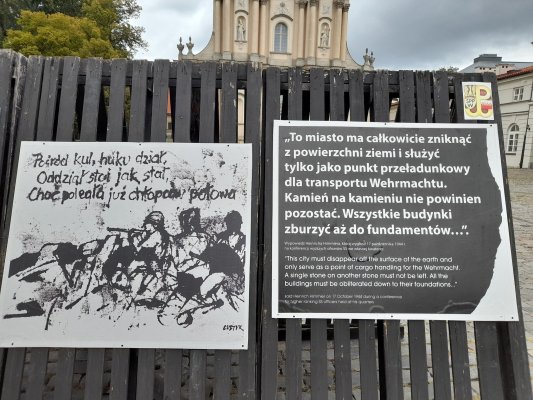 Pośród kul, huku dział,
Oddział stoi jak stał,
Choć poległa już chłopców połowa
„To miasto ma całkowicie zniknąć
z powierzchni ziemi i służyć
tylko jako punkt przeładunkowy
dla transportu Wehrmachtu.
Kamień na kamieniu nie powinien
pozostać. Wszystkie budynki
zburzyć aż do fundamentów…”.
"This city must disappear off the surface of the earth and
only serve as a point of cargo handling for the Wehrmacht.
A single stone on another stone must not be left. All the
buildings must be obliterated down to their foundations..."
said Heinrich Himmler on 17 October 1944 during a conference